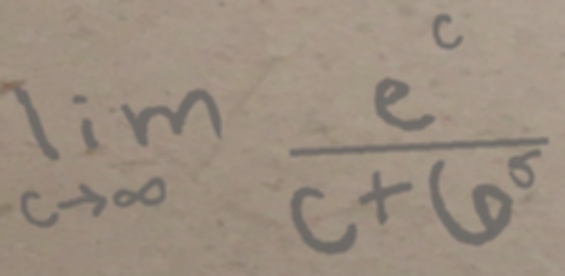 lim_{c→∞} \frac{e^c}{c+6^5}